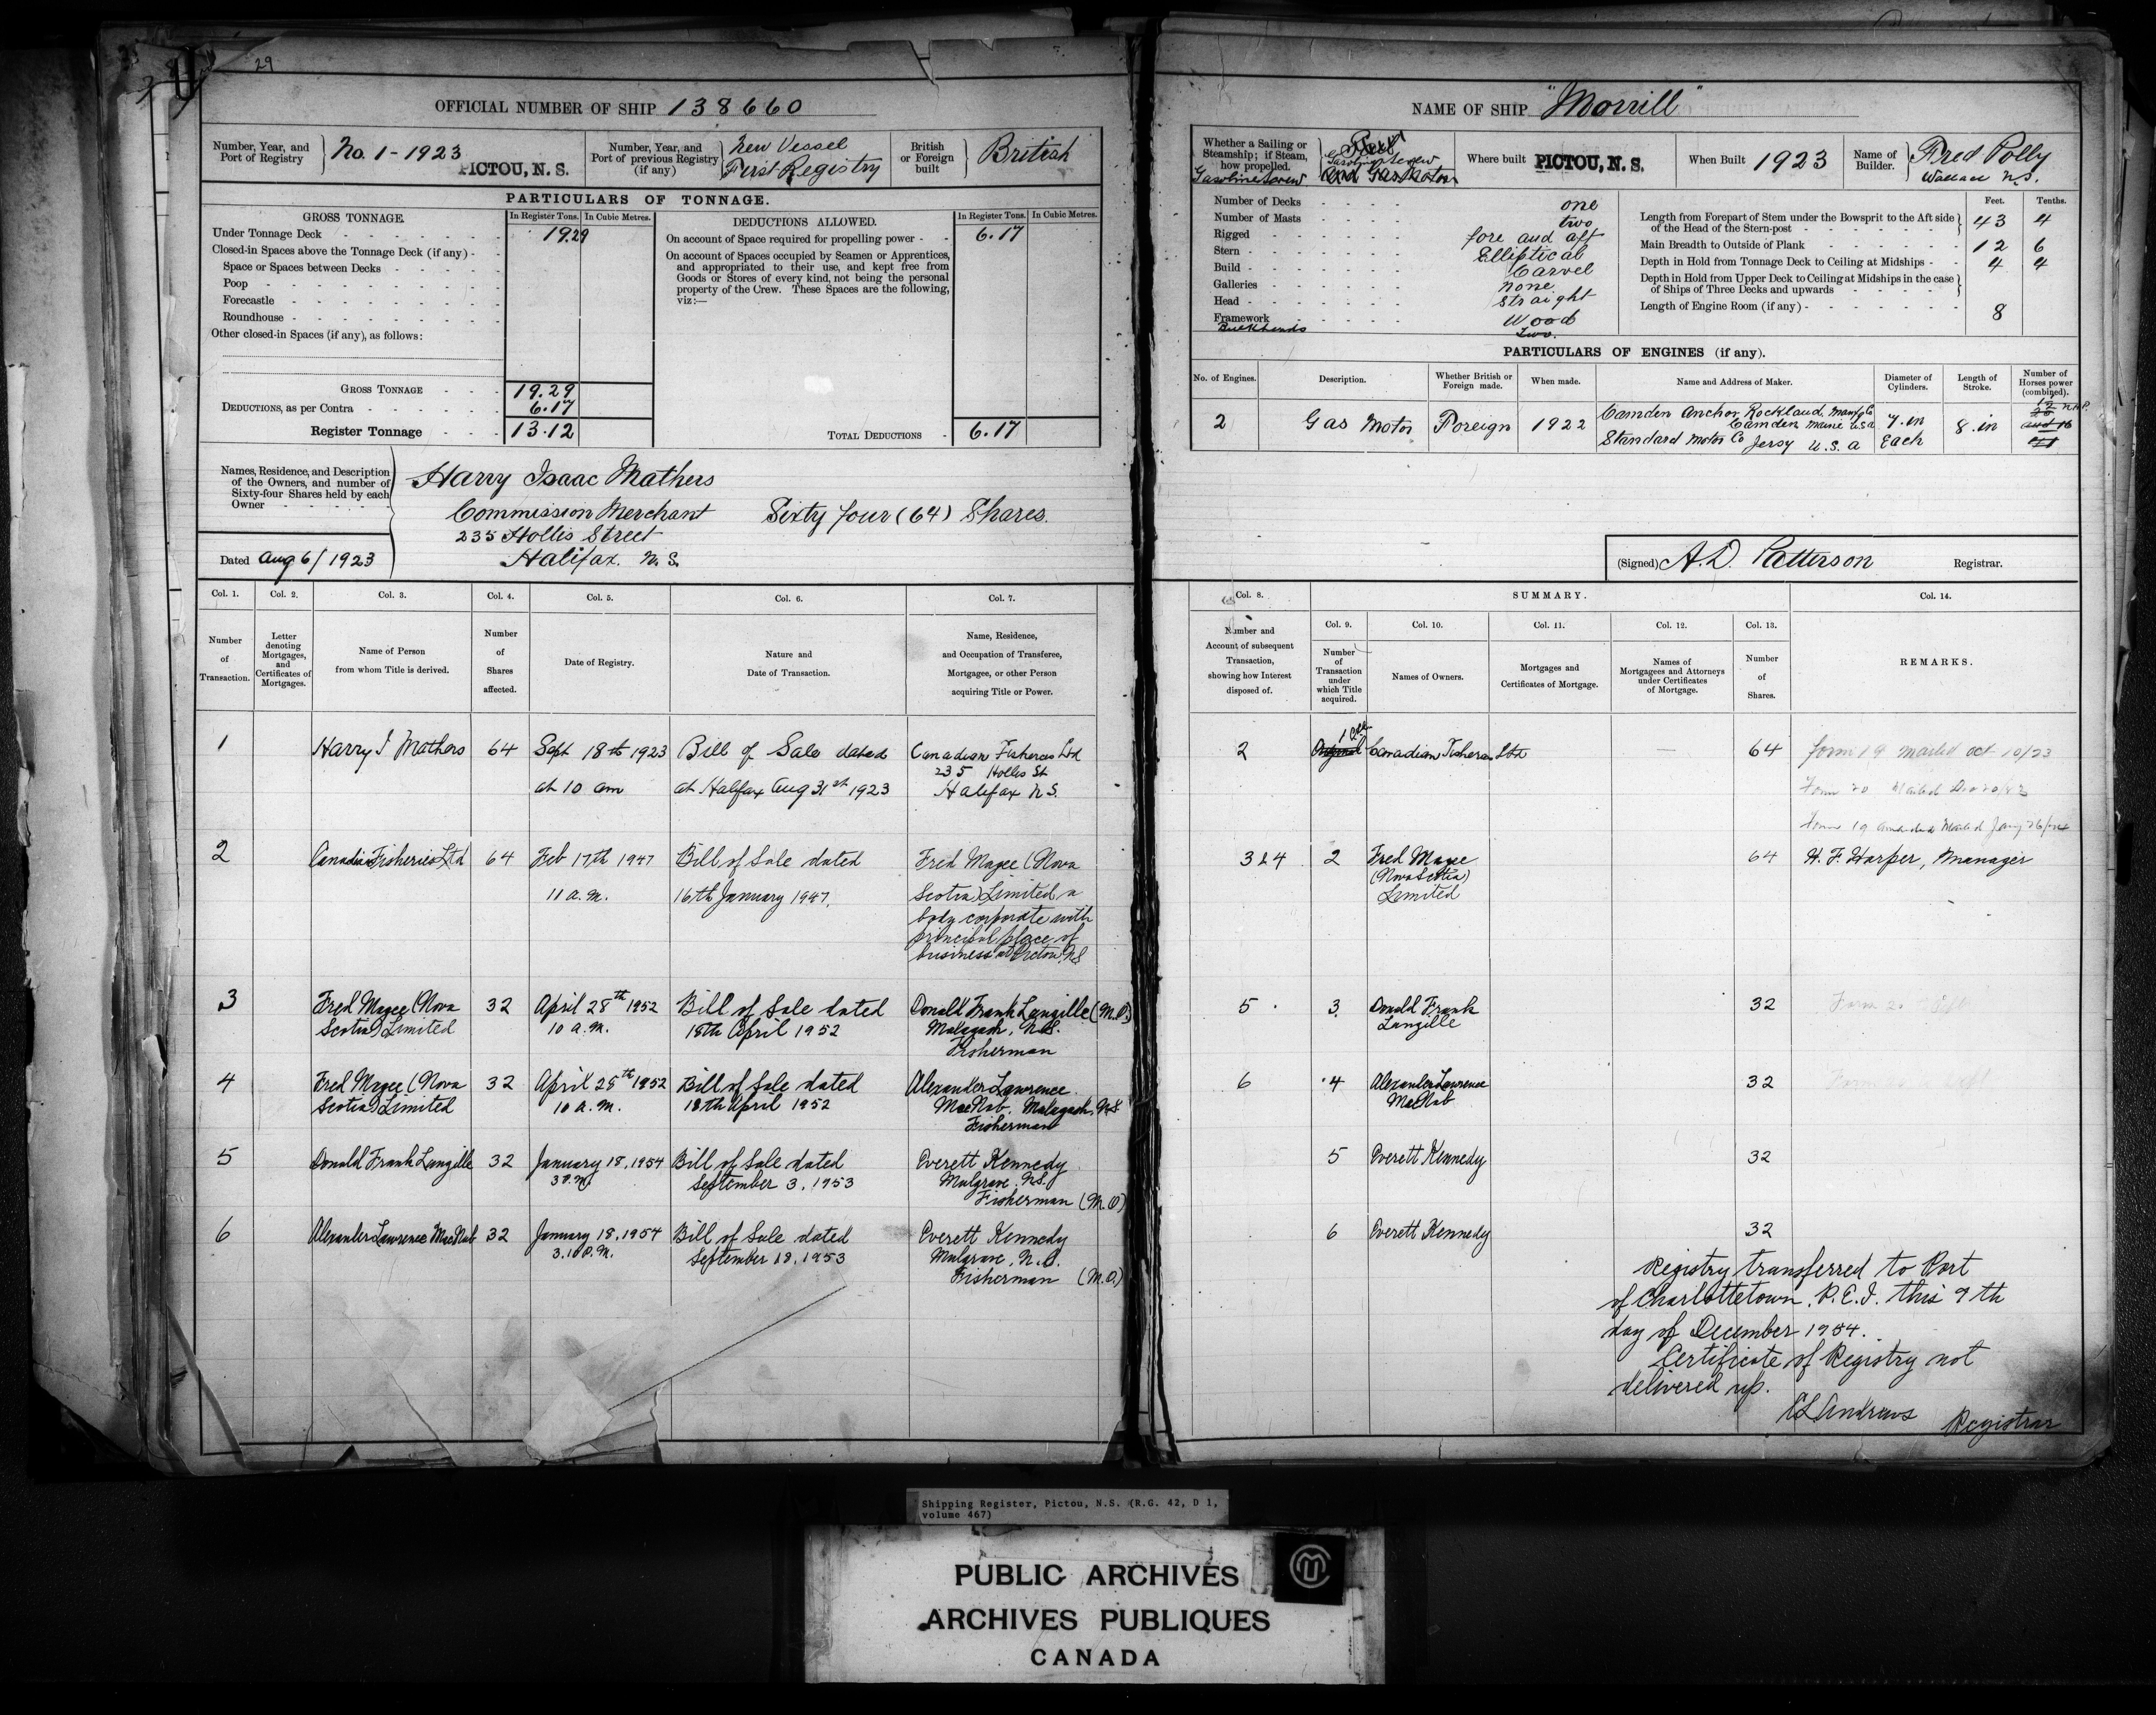 29
OFFICIAL NUMBER OF SHIP 138660
Number, Year, and Port of Registry
No. 1 - 1923
PICTOU, N.S.
Number, Year, and Port of previous Registry (if any)
New Vessel
First Registry
British or Foreign built
British
PARTICULARS OF TONNAGE.
GROSS TONNAGE.
In Register Tons.
In Cubic Metres.
Under Tonnage Deck
19.29
Closed-in Spaces above the Tonnage Deck (if any)
Space or Spaces between Decks
Poop
Forecastle
Roundhouse
Other closed-in Spaces (if any), as follows:
GROSS TONNAGE 19.29
DEDUCTIONS, as per Contra 6.17
Register Tonnage 13.12
DEDUCTIONS ALLOWED.
In Register Tons.
In Cubic Metres.
On account of Space required for propelling power 6.17
On account of Spaces occupied by Seamen or Apprentices,
and appropriated to their use, and kept free from
Goods or Stores of every kind, not being the personal
property of the Crew. These Spaces are the following,
viz:—
TOTAL DEDUCTIONS 6.17
Names, Residence, and Description
of the Owners, and number of
Sixty-four Shares held by each
Owner
Harry Isaac Mathers
Commission Merchant Sixty four (64) Shares.
235 Hollis Street
Halifax. N.S.
Dated Aug 6/1923
Col. 1. Col. 2. Col. 3. Col. 4. Col. 5. Col. 6. Col. 7.
Number of Transaction.
Letter denoting Mortgages, and Certificates of Mortgages.
Name of Person from whom Title is derived.
Number of Shares affected.
Date of Registry.
Nature and Date of Transaction.
Name, Residence, and Occupation of Transferee, Mortgagee, or other Person acquiring Title or Power.
1 Harry I Mathers 64 Sept 18th 1923 Bill of Sale dated Canadian Fisheries Ltd
235 Hollis St
at 10 am at Halifax Aug 31st 1923 Halifax N.S.
2 Canadian Fisheries Ltd 64 Feb 17th 1947 Bill of Sale dated Fred Magee (Nova
11 a.m. 16th January 1947. Scotia) Limited a
body corporate with
principal place of
business at Pictou, NS
3 Fred Magee (Nova 32 April 28th 1952 Bill of Sale dated Donald Frank Langille (M.O.)
Scotia) Limited 10 a.m. 18th April 1952 Malagash, N.S.
Fisherman
4 Fred Magee (Nova 32 April 28th 1952 Bill of Sale dated Alexander Lawrence
Scotia) Limited 10 a.m. 18th April 1952 MacNab, Malagash, N.S.
Fisherman
5 Donald Frank Langille 32 January 18, 1954 Bill of Sale dated Everett Kennedy
3 P.M. September 3, 1953 Mulgrave, N.S.
Fisherman (M.O)
6 Alexander Lawrence MacNab 32 January 18, 1954 Bill of Sale dated Everett Kennedy
3.10 P.M. September 18, 1953 Mulgrave, N.S.
Fisherman (M.O.)
NAME OF SHIP "Morrill"
Whether a Sailing or
Steamship; if Steam,
how propelled.
Gasoline Screw
Gasoline Screw
and Gas Motor
Where built PICTOU, N.S.
When Built 1923
Name of Builder.
Fred Polly
Wallace N.S.
Number of Decks one
Number of Masts two
Rigged fore and aft
Stern Elliptical
Build Carvel
Galleries none
Head straight
Framework Wood
Bulkheads Two.
Feet. Tenths.
Length from Forepart of Stem under the Bowsprit to the Aft side
of the Head of the Stern-post 43 4
Main Breadth to Outside of Plank 12 6
Depth in Hold from Tonnage Deck to Ceiling at Midships 4 4
Depth in Hold from Upper Deck to Ceiling at Midships in the case
of Ships of Three Decks and upwards
Length of Engine Room (if any) 8
PARTICULARS OF ENGINES (if any).
No. of Engines.
Description.
Whether British or Foreign made.
When made.
Name and Address of Maker.
Diameter of Cylinders.
Length of Stroke.
Number of Horses power (combined).
2 Gas Motor Foreign 1922
Camden Anchor Rockland. Manfg Co
Camden Maine USA
Standard Motor Co Jersy U.S.A
7. in
Each
8. in
(Signed) A.D. Patterson Registrar.
Col. 8. SUMMARY. Col. 14.
Col. 9. Col. 10. Col. 11. Col. 12. Col. 13.
Number and Account of subsequent Transaction, showing how Interest disposed of.
Number of Transaction under which Title acquired.
Names of Owners.
Mortgages and Certificates of Mortgage.
Names of Mortgagees and Attorneys under Certificates of Mortgage.
Number of Shares.
REMARKS.
2 Original 1 Canadian Fisheries Ltd — 64 form 19 mailed oct 10/23
Form 20 Mailed
Form 19 amended Mailed Jany 26/24
3 & 4 2 Fred Magee 64 H. F. Harper, Manager
(Nova Scotia)
Limited
5 3 Donald Frank 32
Langille
6 4 Alexander Lawrence 32
MacNab
5 Everett Kennedy 32
6 Everett Kennedy 32
Registry transferred to Port
of Charlottetown, P.E.I. this 9th
day of December 1954.
Certificate of Registry not
delivered up.
Andrews
Registrar
Shipping Register, Pictou, N.S. (R.G. 42, D 1,
volume 467)
PUBLIC ARCHIVES
ARCHIVES PUBLIQUES
CANADA